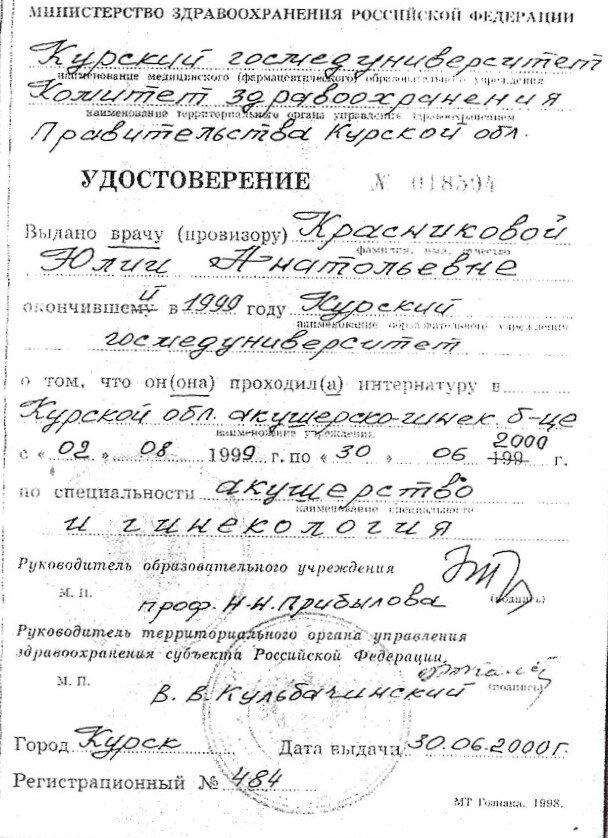 МИНИСТЕРСТВО ЗДРАВООХРАНЕНИЯ РОССИЙСКОЙ ФЕДЕРАЦИИ
Курский госмедуниверситет
наименование медицинского (фармацевтического) образовательного учреждения
Комитет здравоохранения
наименование территориального органа управления здравоохранением
Правительства Курской обл.
УДОСТОВЕРЕНИЕ № 018594
Выдано врачу (провизору) Красниковой
фамилия, имя, отчество
Юлии Анатольевне
окончившему й в 1999 году Курский
наименование образовательного учреждения
госмедуниверситет
о том, что он(она) проходил(а) интернатуру в
Курской обл. акушерско-гинек. б-це
наименование учреждения
2000
с « 02 » 08 1999 г. по « 30 » 06 199 г.
по специальности акушерство
наименование специальности
и гинекология
Руководитель образовательного учреждения
М. П. (подпись)
проф. Н.Н. Прибылова
Руководитель территориального органа управления
здравоохранения субъекта Российской Федерации
М. П. (подпись)
В. В. Кульбачинский
Город Курск Дата выдачи 30.06.2000г.
Регистрационный № 484
МТ Гознака. 1998.